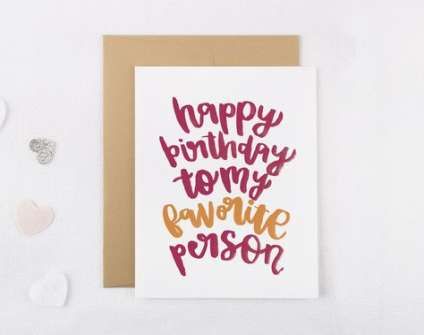 happy
birthday
to my
favorite
person